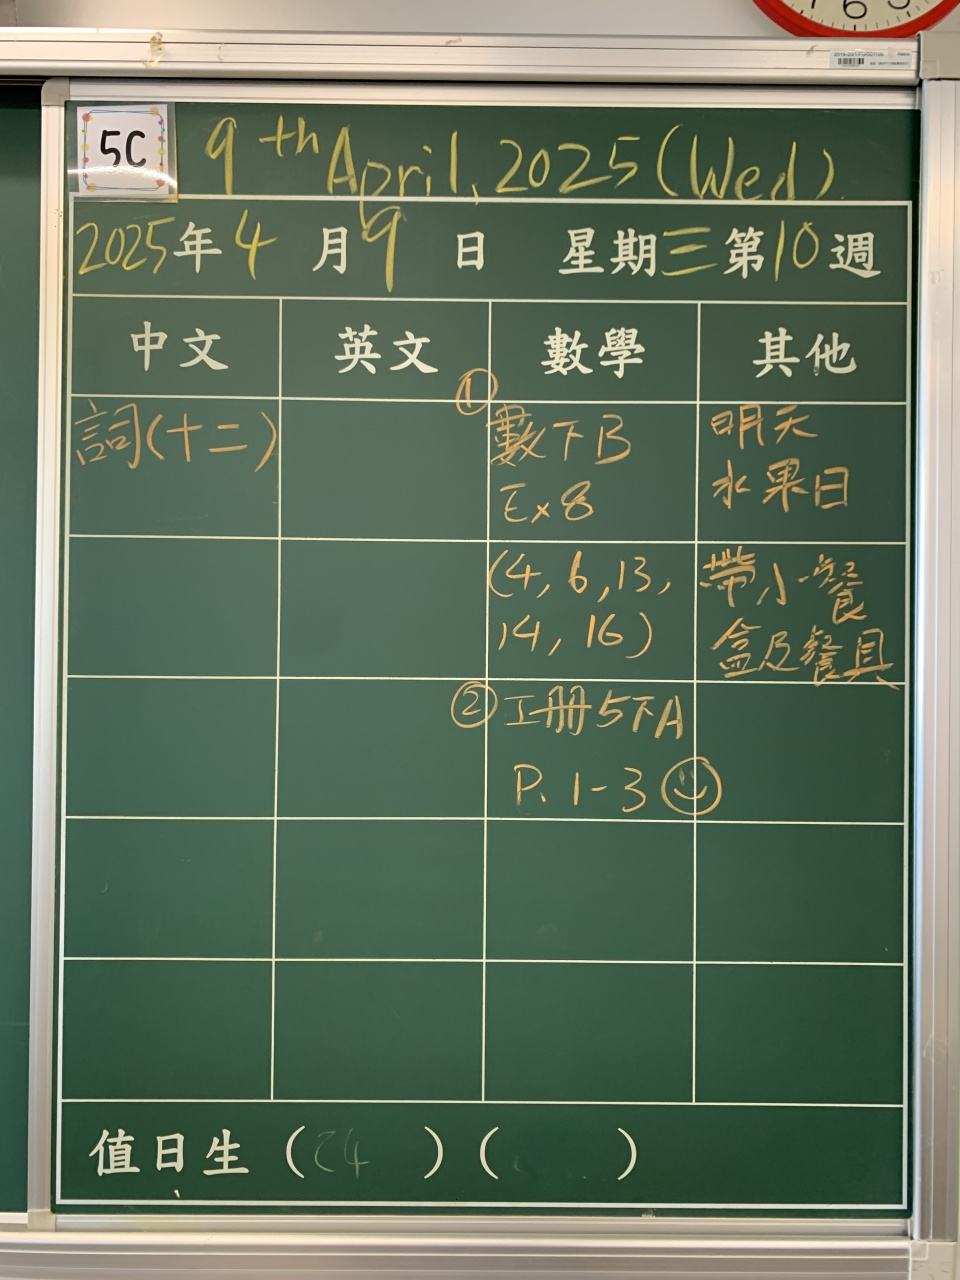 5C
9th April, 2025 (Wed)
2025年4月9日 星期三第10週
中文 英文 數學 其他
詞(十二)
① 數下B
Ex 8
(4, 6, 13,
14, 16)
② 工册5下A
P. 1-3
明天
水果日
帶小餐
盒及餐具
值日生 (24 ) ( )